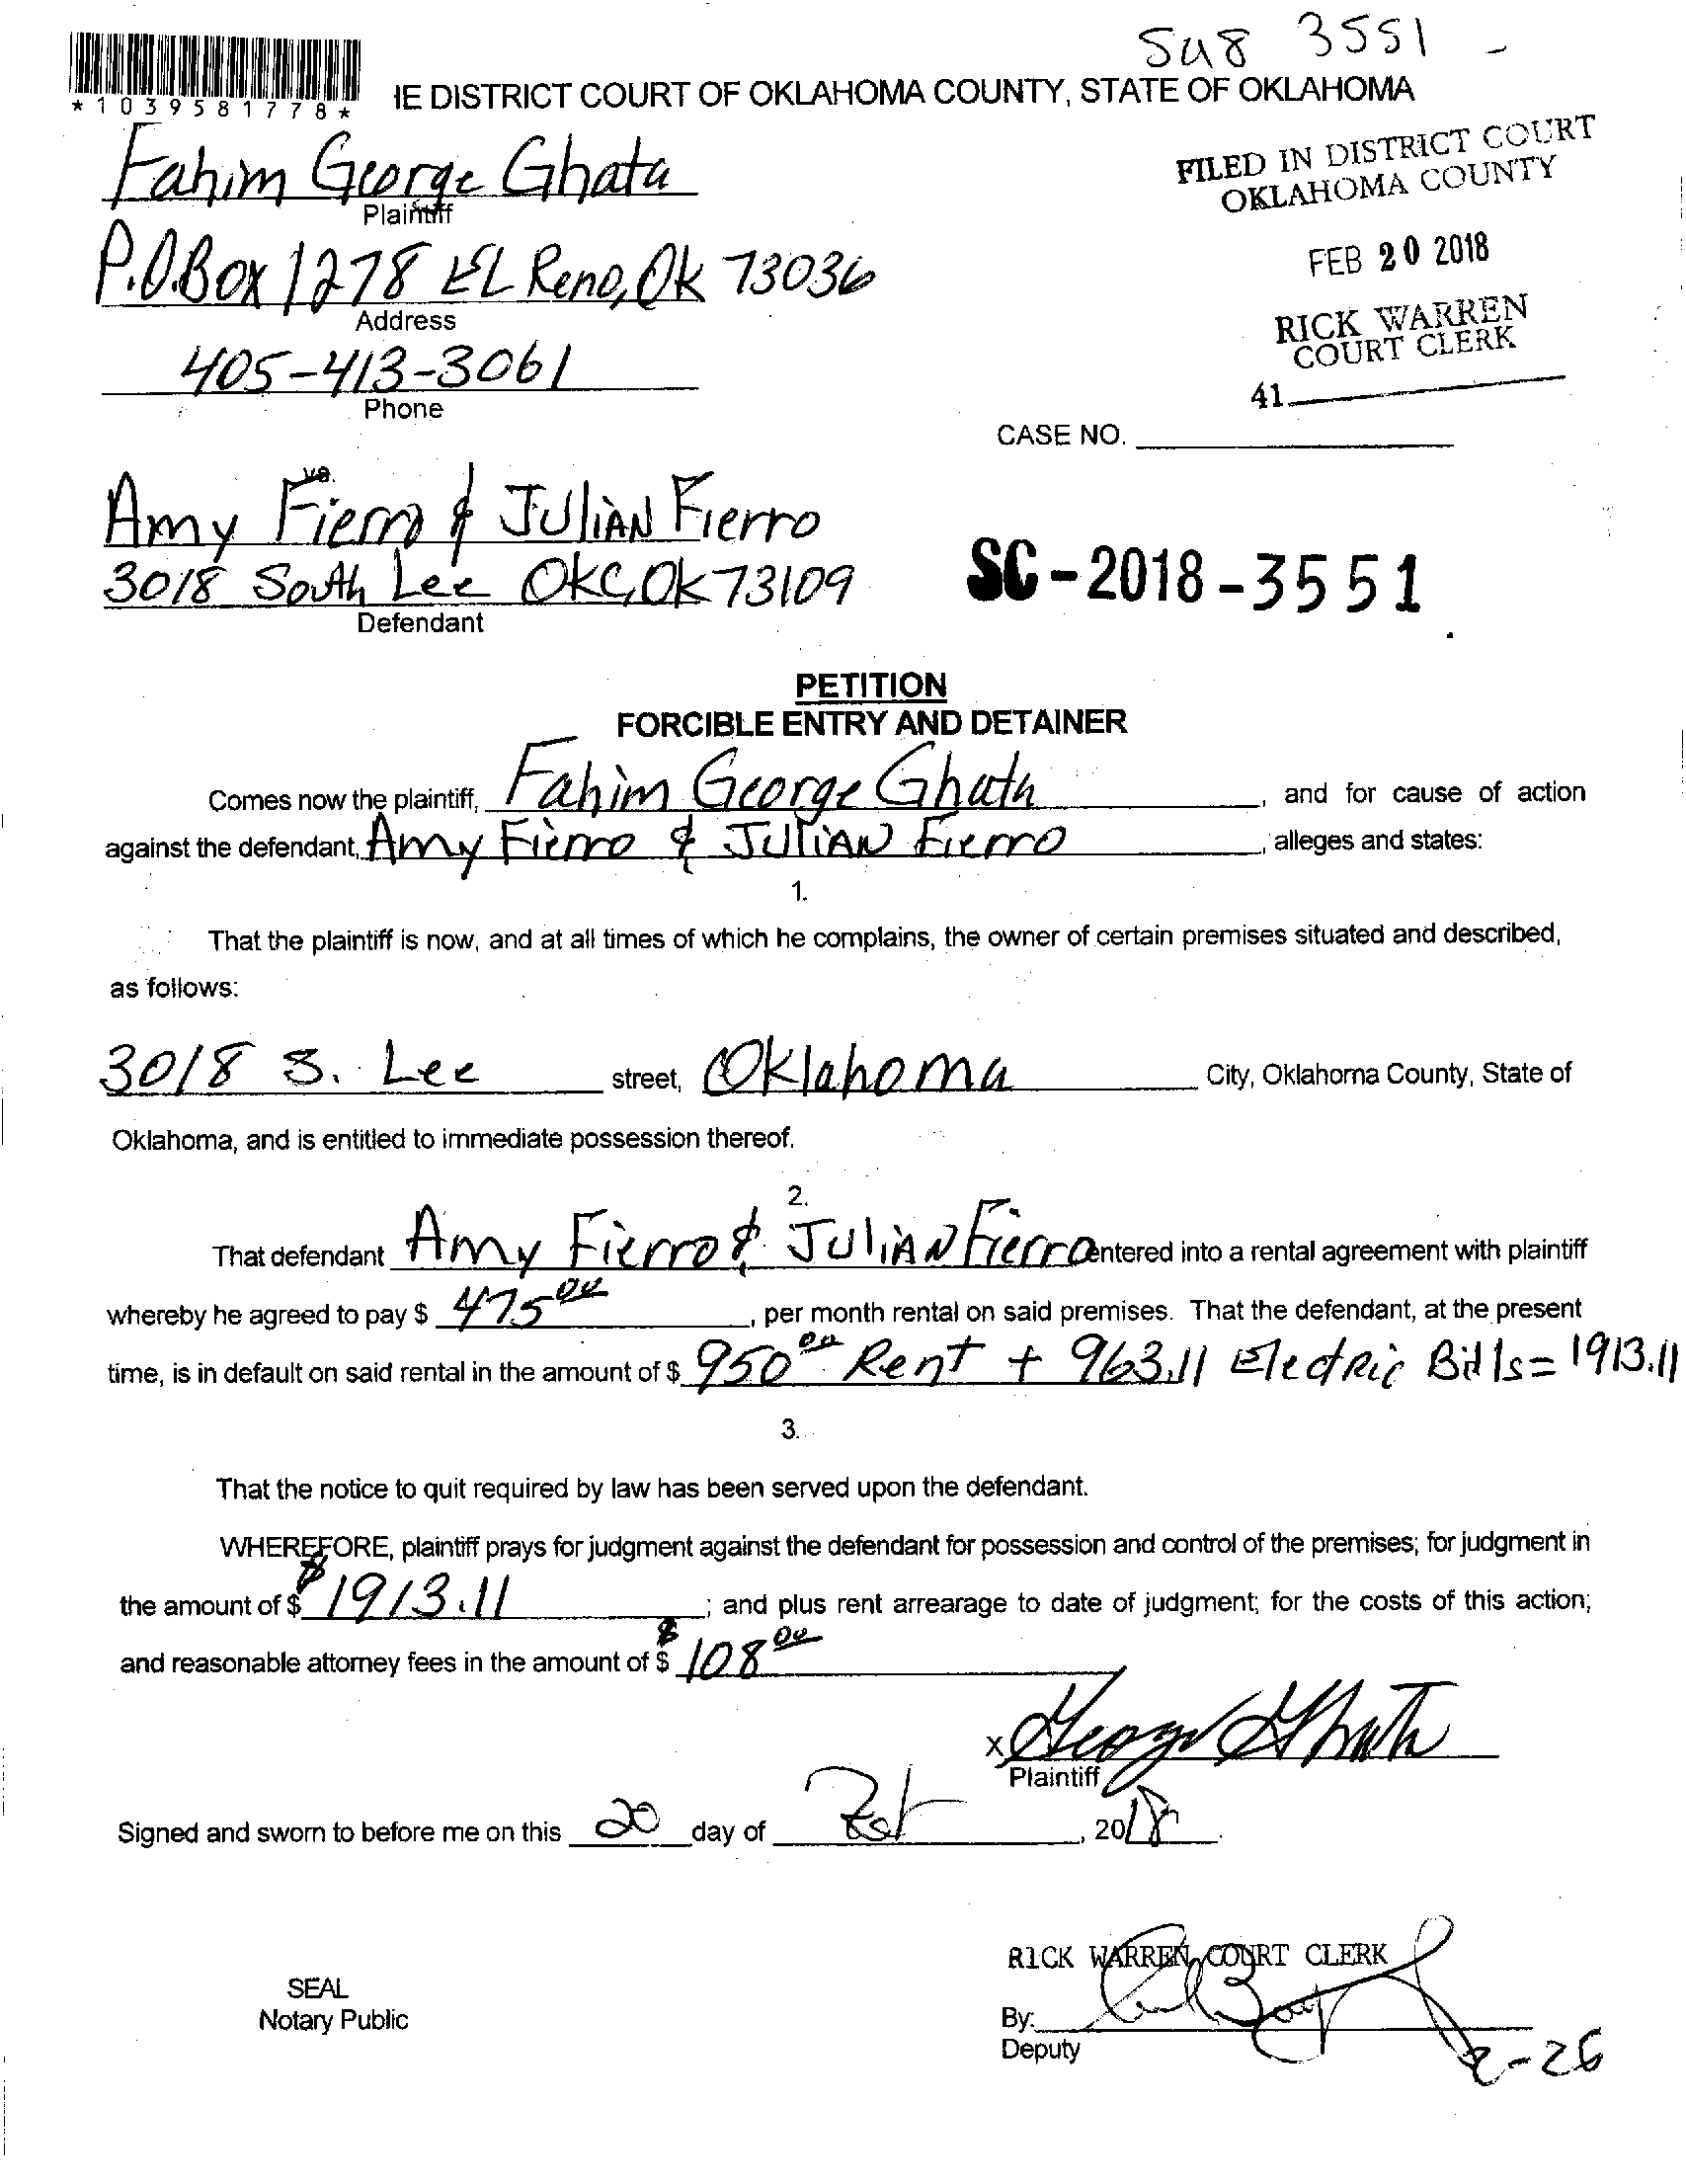 Su8 3551 -
*1039581778*
IE DISTRICT COURT OF OKLAHOMA COUNTY, STATE OF OKLAHOMA
Fahim George Ghata
Plaintiff
FILED IN DISTRICT COURT
OKLAHOMA COUNTY
P.O.Box 1278 EL Reno, Ok 73036
Address
FEB 20 2018
RICK WARREN
COURT CLERK
405-413-3061
Phone
41
CASE NO.
vs.
Amy Fierro & JuliAN Fierro
3018 South Lee OKC, OK 73109
Defendant
SC-2018-3551
PETITION
FORCIBLE ENTRY AND DETAINER
Comes now the plaintiff, Fahim George Ghata, and for cause of action
against the defendant, Amy Fierro & JuliAN Fierro, alleges and states:
1.
That the plaintiff is now, and at all times of which he complains, the owner of certain premises situated and described,
as follows:
3018 S. Lee street, Oklahoma City, Oklahoma County, State of
Oklahoma, and is entitled to immediate possession thereof.
2.
That defendant Amy Fierro & JuliAN Fierro entered into a rental agreement with plaintiff
whereby he agreed to pay $ 475 00, per month rental on said premises. That the defendant, at the present
time, is in default on said rental in the amount of $ 950 00 Rent + 963.11 Electric Bills = 1913.11
3.
That the notice to quit required by law has been served upon the defendant.
WHEREFORE, plaintiff prays for judgment against the defendant for possession and control of the premises; for judgment in
the amount of $ $1913.11; and plus rent arrearage to date of judgment; for the costs of this action;
and reasonable attorney fees in the amount of $ $108 00
x George Ghata
Plaintiff
Signed and sworn to before me on this 20 day of Feb, 2018
RICK WARREN, COURT CLERK
SEAL
Notary Public
By:
Deputy
2-26